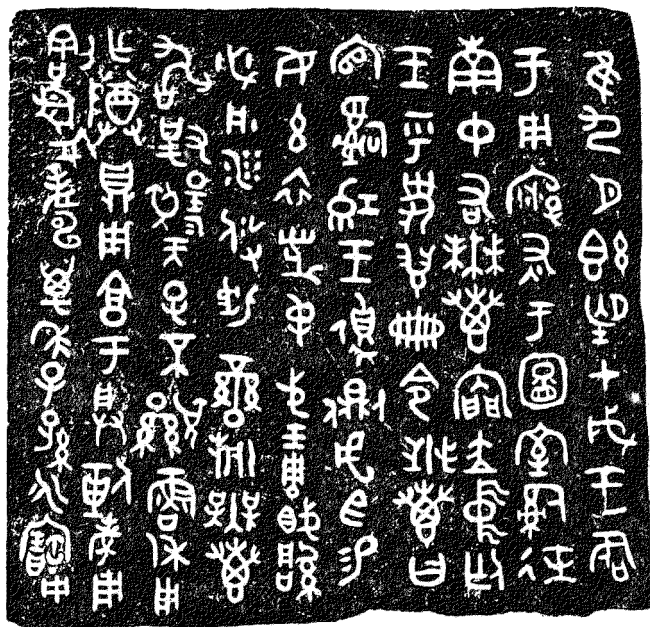 隹九月既望甲戌王各
于周廟述于圖室司徒
南中右無叀內門立中廷
王乎史翏冊令無叀曰
官司紅王遉側虎臣易
女玄衣黹屯戈琱胾厚
必彤沙攸勒鑾旂無叀
敢對揚天子不顯魯休用
乍尊鼎用享于朕剌考用
割眉壽萬年子孫永寶用